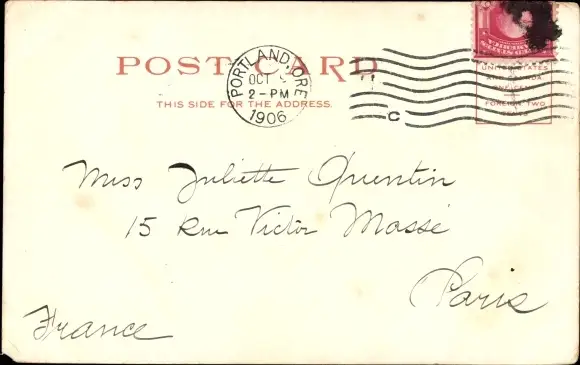 POST CARD
THIS SIDE FOR THE ADDRESS.
PORTLAND, ORE
OCT
2-PM
1906
C
UNITED STATES
AND CANADA
ONE CENT
FOREIGN TWO
CENTS
Miss Juliette Quentin
15 Rue Victor Massé
Paris
France